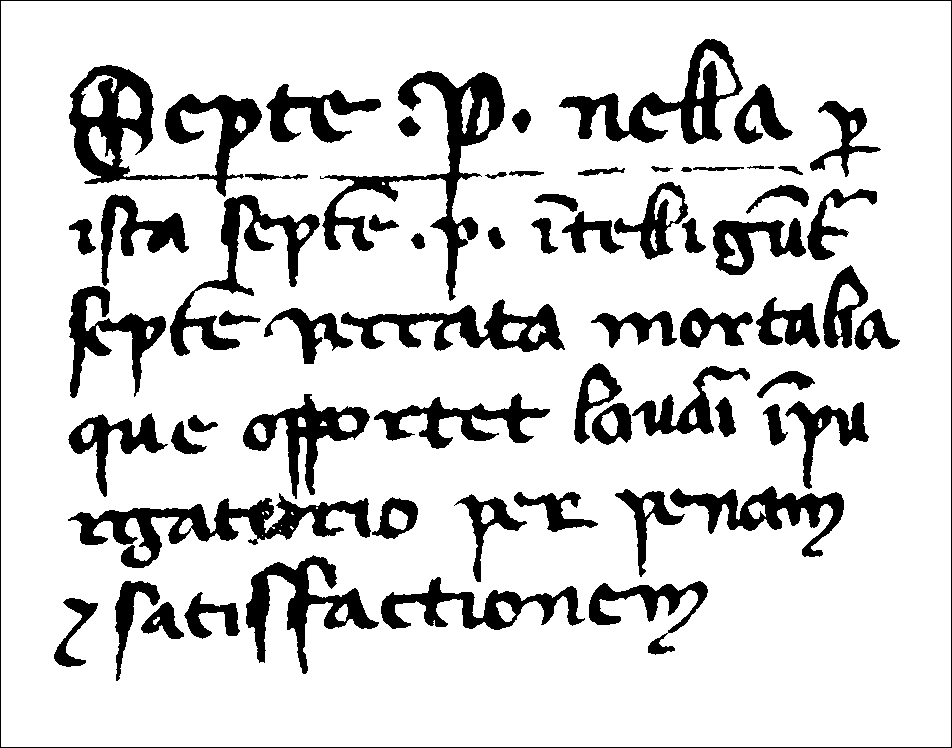 Septe .P. nella ꝑ
ista septē .p. ītelligūt̃
septē peccata mortalia
que opportet lauāi ī pu
rgatorio per penam
⁊ satisfactionem